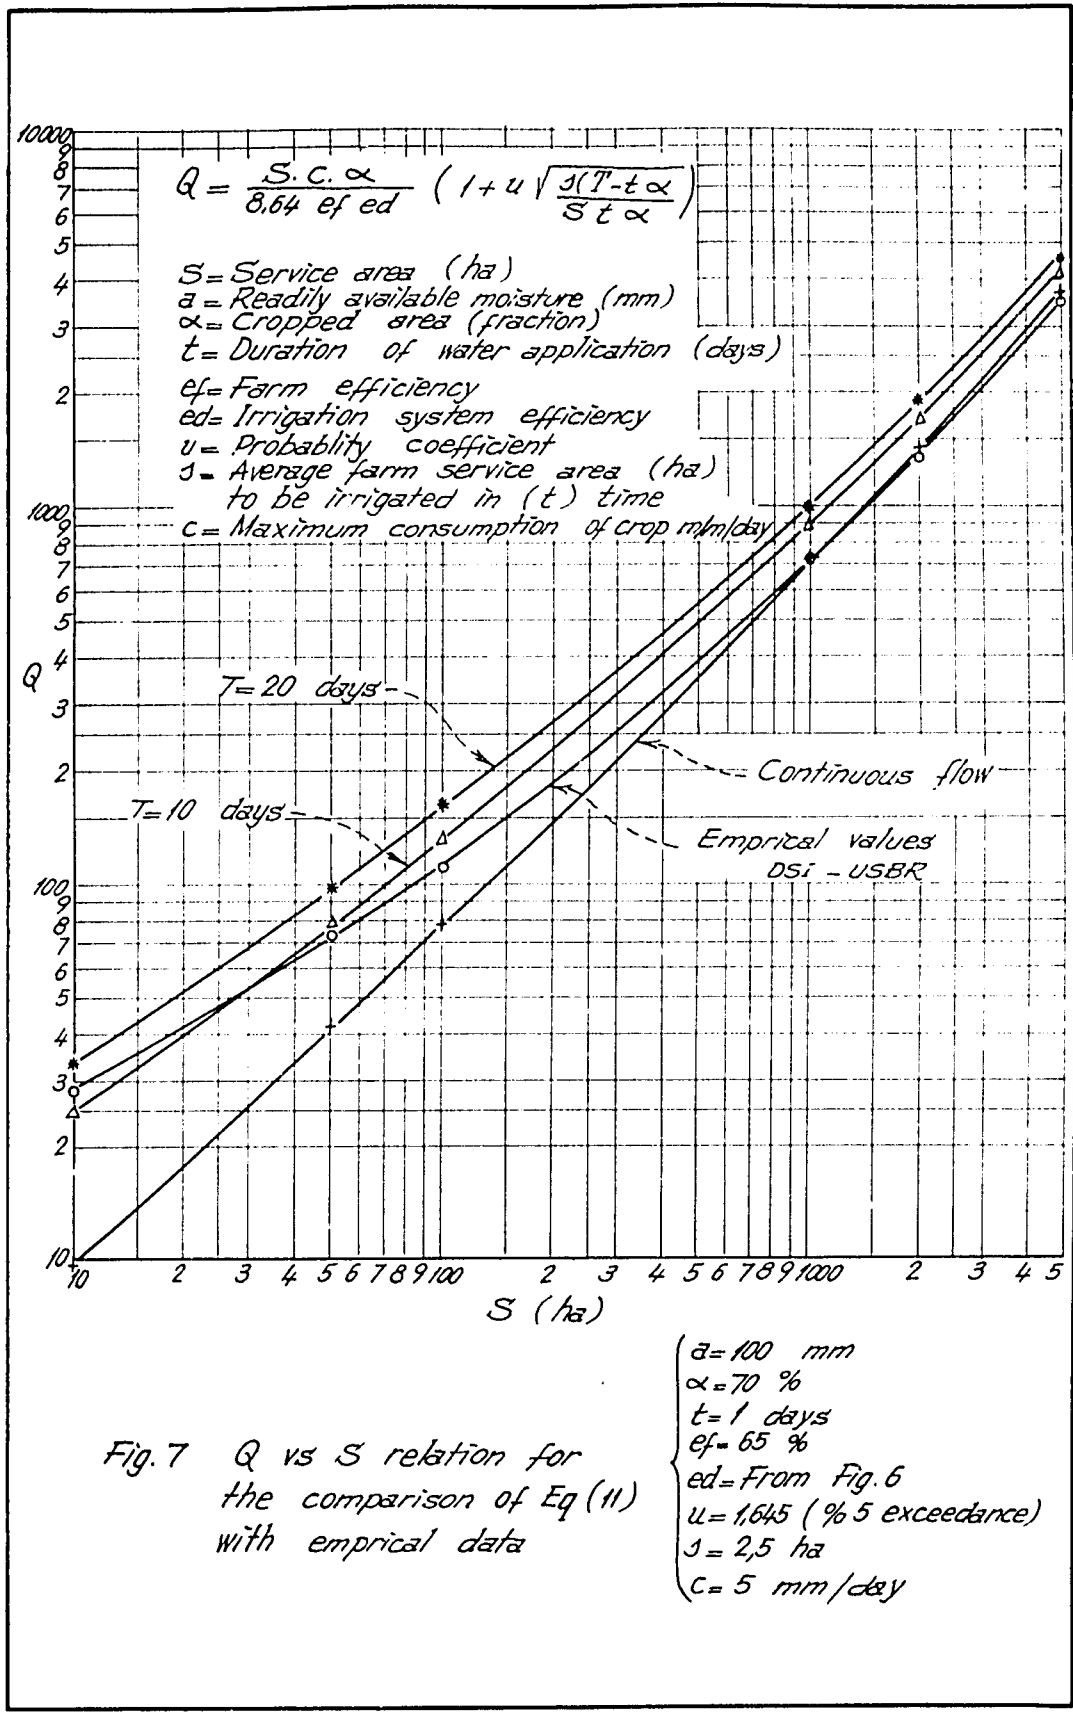 10000
9
8
7
6
5
4
3
2
1000
9
8
7
6
5
4
3
2
100
9
8
7
6
5
4
3
2
10
Q
Q = S. C. α / 8,64 ef ed ( 1 + u √ s(T-tα / S t α )
S = Service area (ha)
a = Readily available moisture (mm)
α = Cropped area (fraction)
t = Duration of water application (days)
ef = Farm efficiency
ed = Irrigation system efficiency
u = Probablity coefficient
s = Average farm service area (ha)
to be irrigated in (t) time
c = Maximum consumption of crop m/m/day
T= 20 days
T= 10 days
Continuous flow
Emprical values
DSi - USBR
10 2 3 4 5 6 7 8 9 100 2 3 4 5 6 7 8 9 1000 2 3 4 5
S (ha)
Fig. 7 Q vs S relation for
the comparison of Eq (11)
with emprical data
a = 100 mm
α = 70 %
t = 1 days
ef = 65 %
ed = From Fig. 6
u = 1,645 ( % 5 exceedance)
s = 2,5 ha
C = 5 mm/day